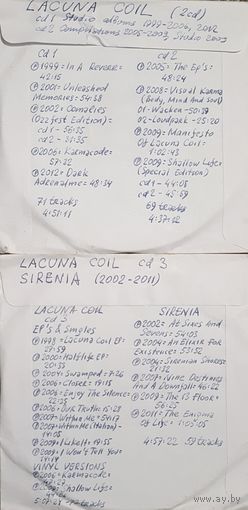 LACUNA COIL (2cd)
cd 1 Studio albums 1999-2006, 2012
cd 2 Compilations 2005-2009, Studio 2009
cd 1
℗ 1999: In A Reverie:
42:15
℗ 2001: Unleashed
Memories: 54:58
℗ 2002: Comalies
(Ozzfest Edition):
cd 1 - 56:35
cd 2 - 31:35
℗ 2006: Karmacode:
57:22
℗ 2012: Dark
Adrenaline: 48:34
71 tracks
4:51:11
cd 2
℗ 2005: The Ep's:
48:24
℗ 2008: Visual Karma
(Body, Mind And Soul)
01-Wacken-50:19
02-Loudpark-25:20
℗ 2009: Manifesto
Of Lacuna Coil:
1:02:43
℗ 2009: Shallow Life:
(Special Edition)
cd 1 - 44:08
cd 2 - 45:59
69 tracks
4:37:12
LACUNA COIL cd 3
SIRENIA (2002-2011)
LACUNA COIL
cd 3
EP's & Singles
℗ 1998: Lacuna Coil EP:
27:59
℗ 2000: Halflife EP:
20:55
℗ 2004: Swamped: 7:26
℗ 2006: Closer: 19:15
℗ 2006: Enjoy The Silence:
℗ 2006: Our Truth: 15:28
℗ 2007: Within Me: 54:17
℗ 2007: Within Me (Italian)-
℗ 2009: I Like It: 19:55
℗ 2009: I Won't Tell You:
VINYL VERSIONS
℗ 2006: Karmacode:
Shallow Life:
SIRENIA
℗ 2002: At Sixes And
Sevens: 54:03
℗ 2004: An Elixir For
Existence: 53:52
℗ 2004: Sirenian Shores:
21:32
℗ 2007: Nine Destinies
And A Downfall: 46:22
℗ 2009: The 13 Floor:
56:25
℗ 2011: The Enigma
Of Life: 1:05:05
4:57:22 59 tracks
www.ay.by